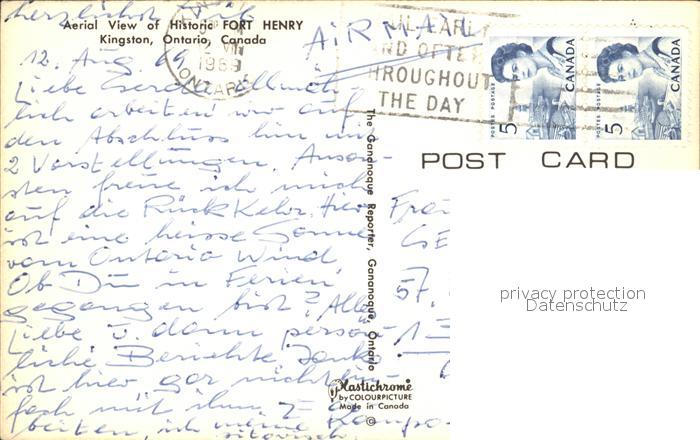 herzlichst
Aerial View of Historic FORT HENRY
Kingston, Ontario, Canada
AIRMAIL
MAIL EARLY
AND OFTEN
THROUGHOUT
THE DAY
1969
ONTARIO
POSTES POSTAGE
5
CANADA
POSTES POSTAGE
5
CANADA
POST CARD
12. Aug. 69
Liebe Gerda, allmäh-
lich arbeiten wir auf
den Abschluss hin mit
2 Vorstellungen. Anson-
sten freue ich mich
auf die Rückkehr. Hier
ist eine heisse Sonne
vom Ontario Wind.
Ob Du in Ferien
gegangen bist? Alles
Liebe u. dann persön-
liche Berichte. Janko
ist hier gar nicht ein-
fach mit ihm z.
beiten, ich meine kompo-
sitorisch.
The Gananoque Reporter, Gananoque, Ontario
Plastichrome
by COLOURPICTURE
Made in Canada
©
57.
privacy protection
Datenschutz